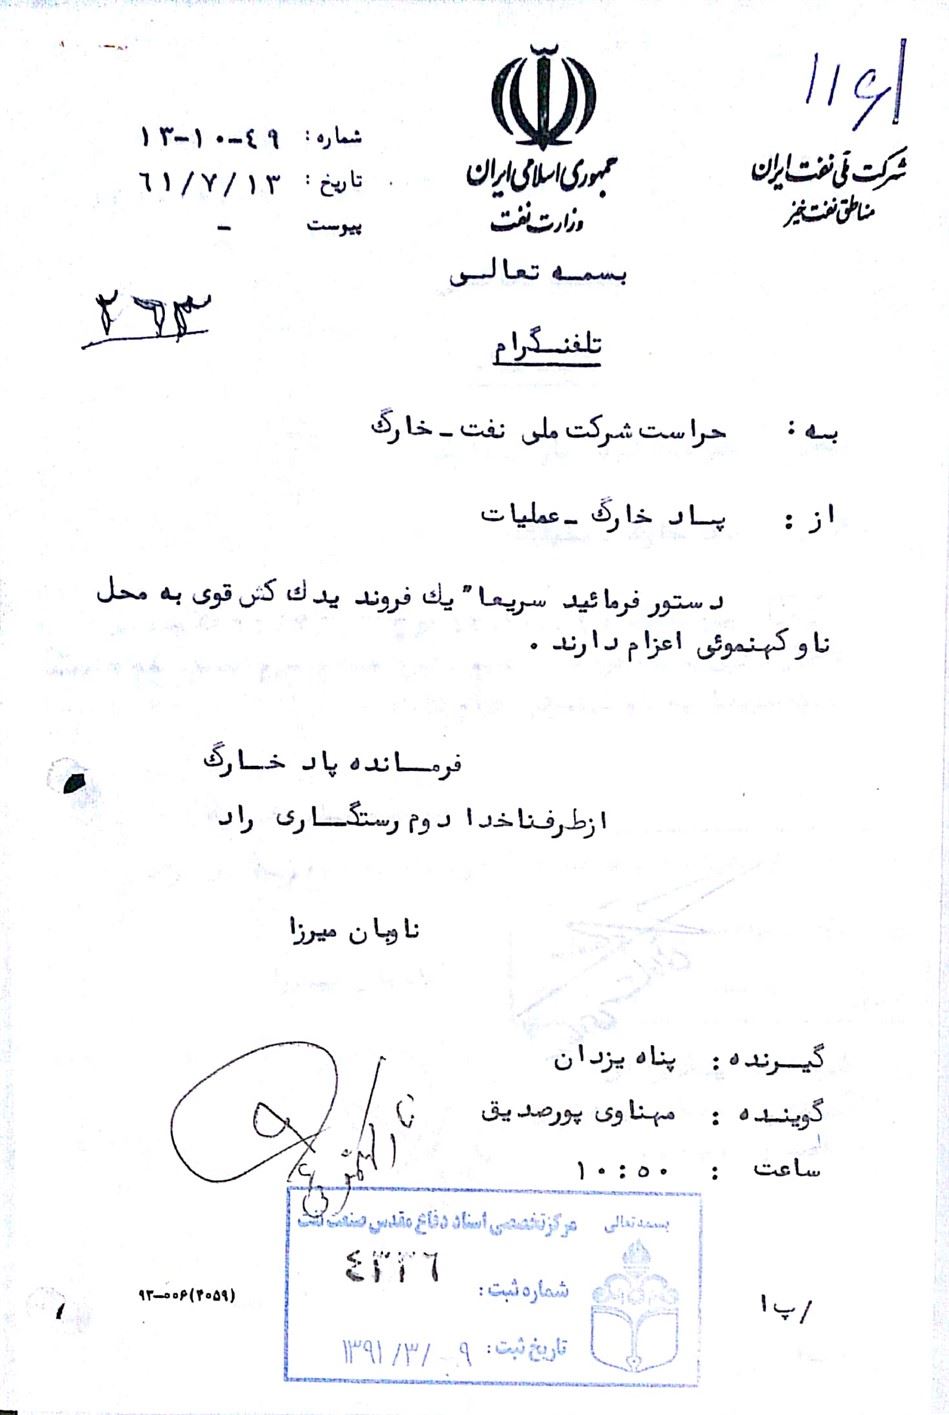 ۱۱۶/
شرکت ملی نفت ایران
مناطق نفت خیز
جمهوری اسلامی ایران
وزارت نفت
شماره : ۴۹-۱۰-۱۳
تاریخ : ۶۱/۷/۱۳
پیوست -
بسمه تعالی
۲۶۳
تلفنگرام
به : حراست شرکت ملی نفت - خارگ
از : پاد خارگ - عملیات
دستور فرمائید سریعا" یك فروند یدك كش قوی به محل
ناو کهنموئی اعزام دارند .
فرمانده پاد خارگ
ازطرف ناخدا دوم رستگاری راد
ناوبان میرزا
گیرنده : پناه یزدان
گوینده : مهناوی پورصدیق
ساعت : ۱۰:۵۰
بسمه تعالی
مرکز تخصصی اسناد دفاع مقدس صنعت نفت
شماره ثبت : ۴۳۳۶
تاریخ ثبت : ۱۳۹۱/۳/۰۹
/پ ا
۹۳-۰۰۶(۴۰۵۹)